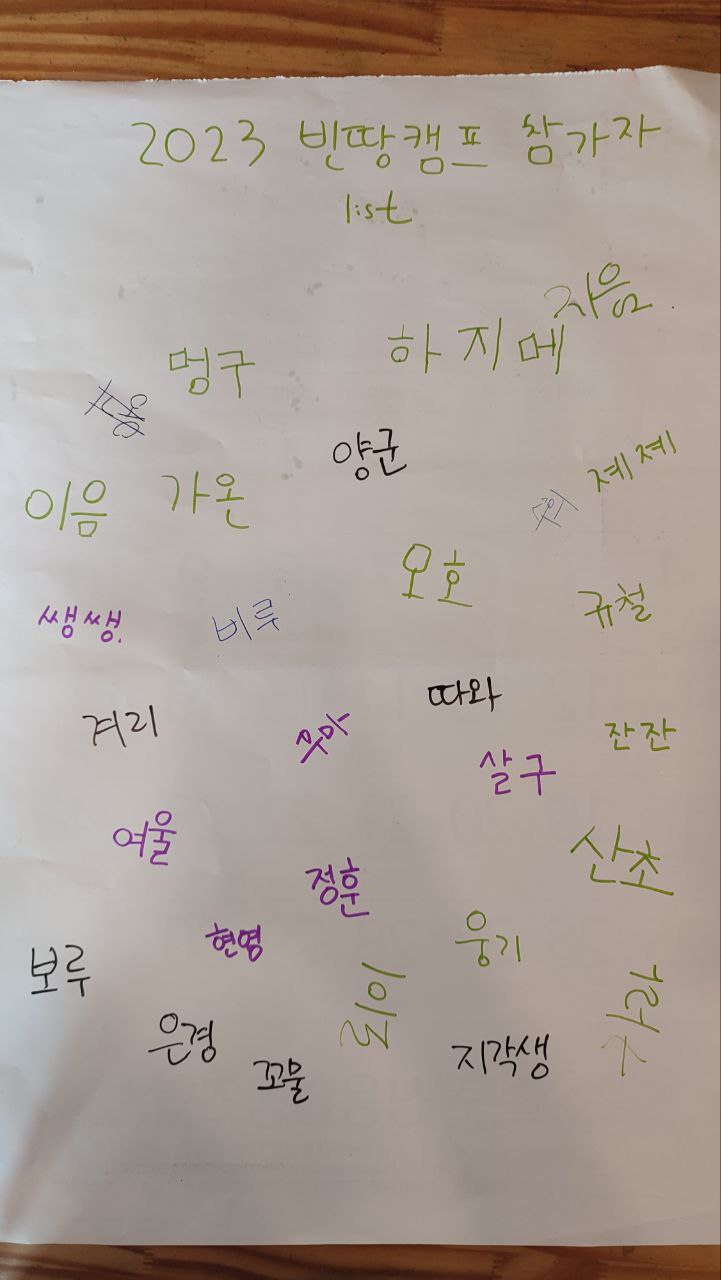 2023 빈땅캠프 참가자
list
지음
멍구
하지메
양군
제제
이음
가온
오호
규철
쌩쌩.
비루
따와
겨리
잔잔
살구
여울
산초
정훈
현영
웅기
보루
은경
꼬물
지각생